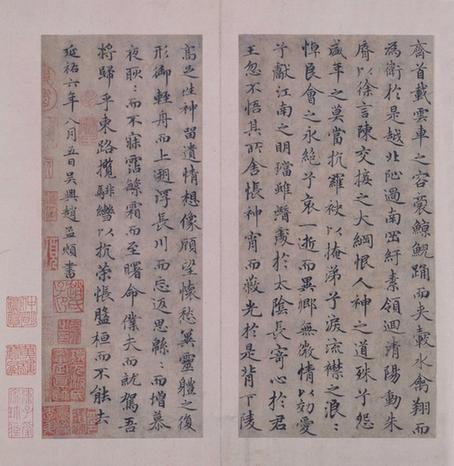 齊首載雲車之容裔鯨鯢踊而夾轂水禽翔而
為衛於是越北沚過南岡紆素領迴清陽動朱
脣以徐言陳交接之大綱恨人神之道殊兮怨
盛年之莫當抗羅袂以掩涕兮淚流襟之浪〻
悼良會之永絕兮哀一逝而異鄉無微情以効愛
兮獻江南之明璫雖潛處於太陰長寄心於君
王忽不悟其所舍悵神宵而蔽光於是背下陵
高足往神留遺情想像顧望懷愁冀靈體之復
形御輕舟而上遡浮長川而忘返思緜〻而增慕
夜耿〻而不寐霑繁霜而至曙命僕夫而就駕吾
將歸乎東路攬騑轡以抗策悵盤桓而不能去
延祐六年八月五日吳興趙孟頫書